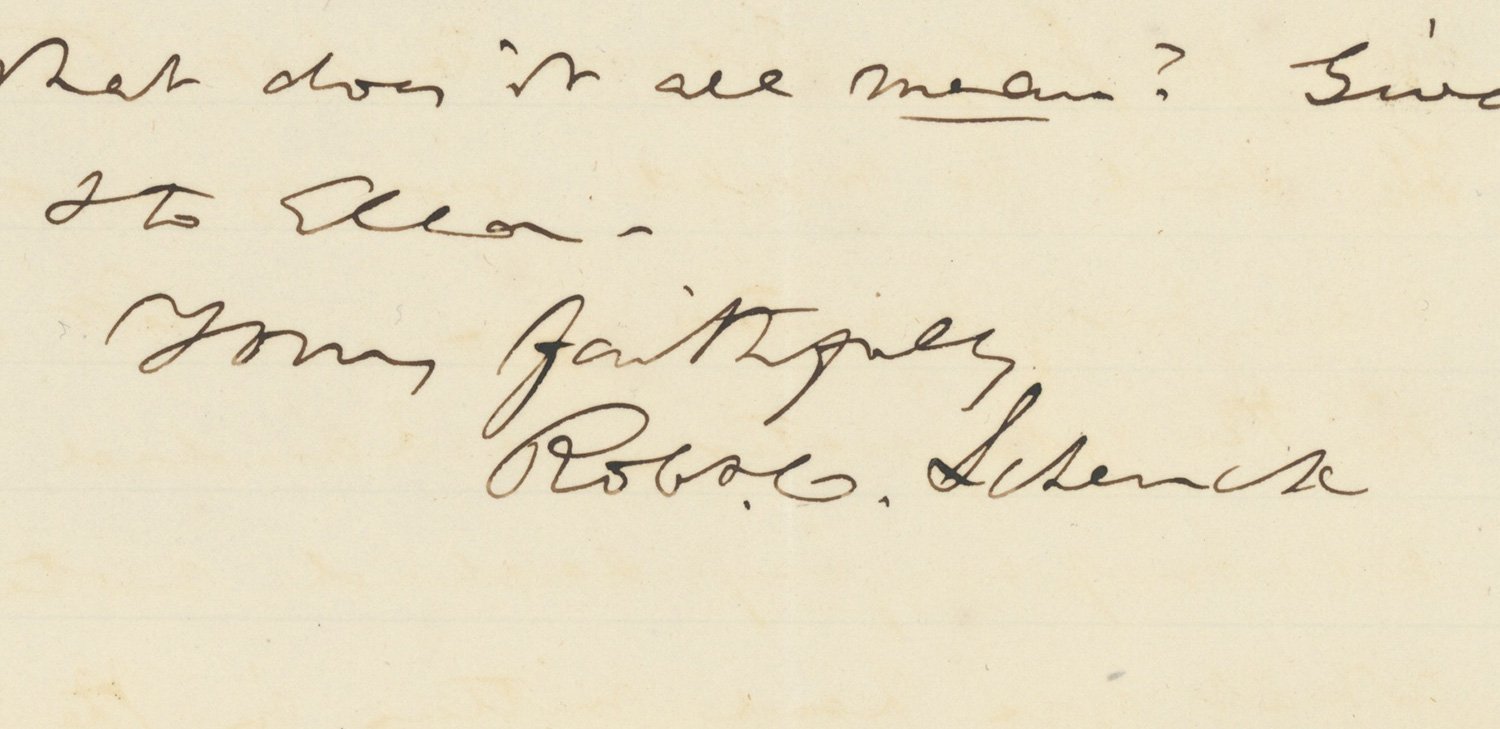 What does it all mean? Give
to Ella -
Yours faithfully
Robt. C. Schenck